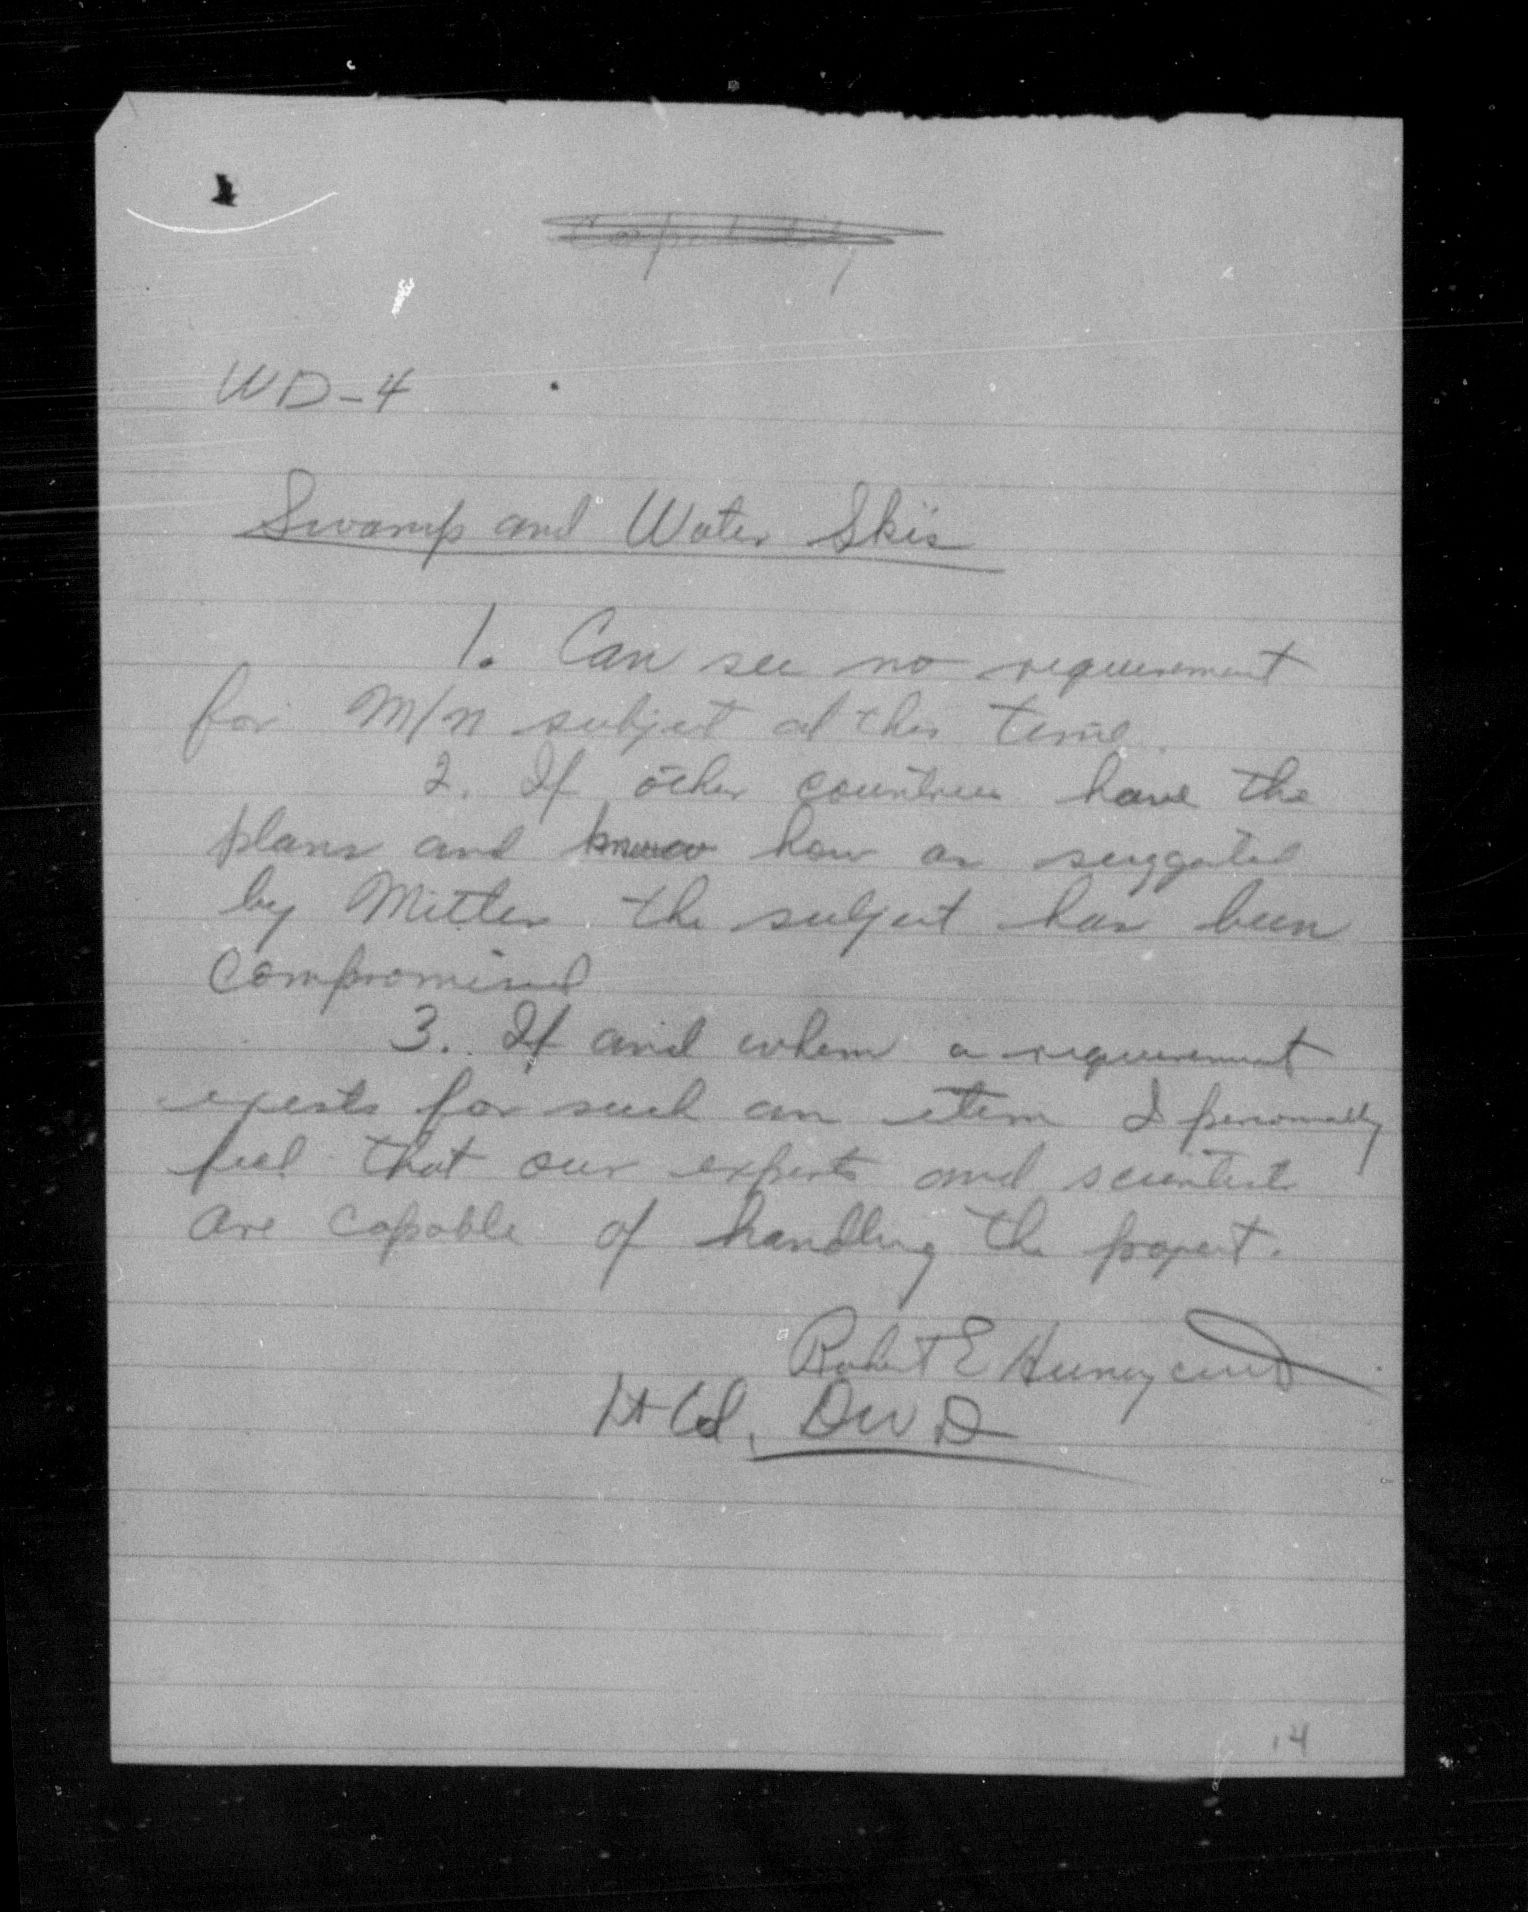 WD-4
Swamp and Water Skiis
1. Can see no requirement
for M/n subject at this time.
2. If other countries have the
plans and know how as suggested
by Mitler the subject has been
compromised
3. If and when a requirement
exists for such an item I personally
feel that our experts and scientist
are capable of handling the project.
Robert E Huneycutt
Lt Col, DWD
14